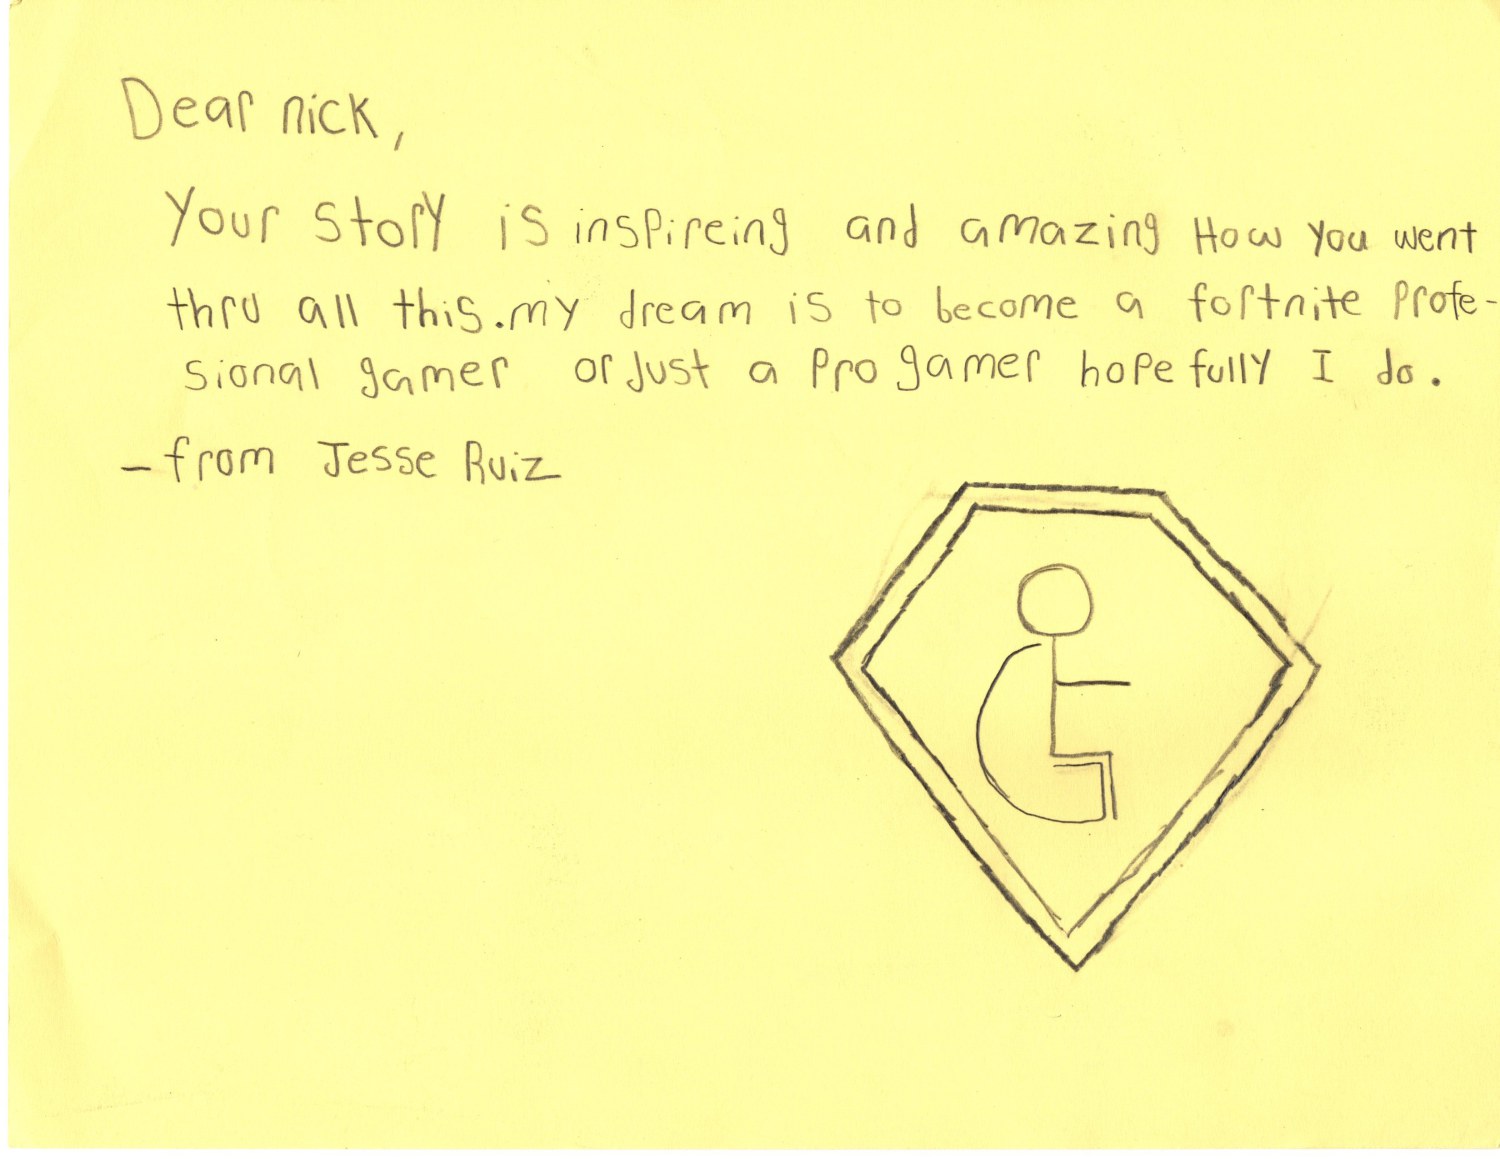 Dear nick,
Your story is inspireing and amazing How you went
thru all this. my dream is to become a fortnite profe-
sional gamer or Just a pro gamer hopefully I do.
- from Jesse Ruiz